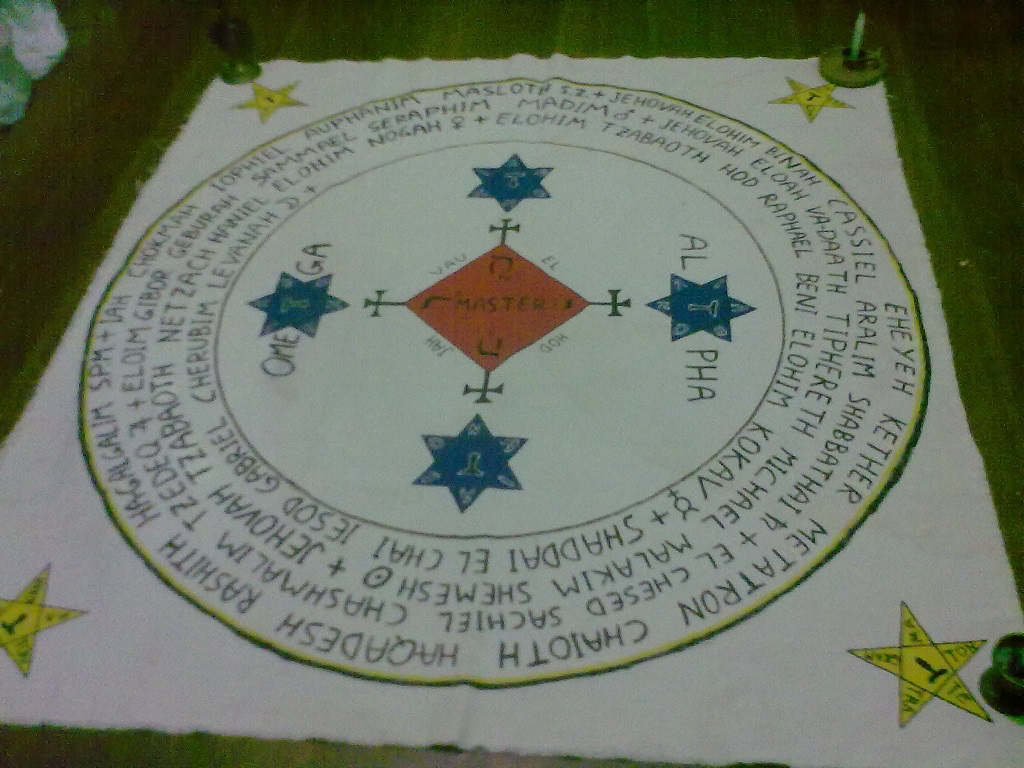 EHEYEH KETHER METATRON CHAIOTH HAQADESH RASHITH HAGALGALIM SPM + IAH CHOKMAH IOPHIEL AUPHANIM MASLOTH S.Z. + JEHOVAH ELOHIM BINAH
CASSIEL ARALIM SHABBATHAI ♄ + EL CHESED SACHIEL CHASHMALIM TZEDEQ ♃ + ELOIM GIBOR GEBURAH SAMMAEL SERAPHIM MADIM ♂ + JEHOVAH ELOAH
VA-DAATH TIPHERETH MICHAEL MALAKIM SHEMESH ☉ + JEHOVAH TZABAOTH NETZACH HANIEL ELOHIM NOGAH ♀ + ELOHIM TZABAOTH
HOD RAPHAEL BENI ELOHIM KOKAV ☿ + SHADDAI EL CHAI IESOD GABRIEL CHERUBIM LEVANAH ☽ +
AL PHA
OME GA
VAU
EL
MASTER
JAH
HOD
T
T
T
T
TE
TRA